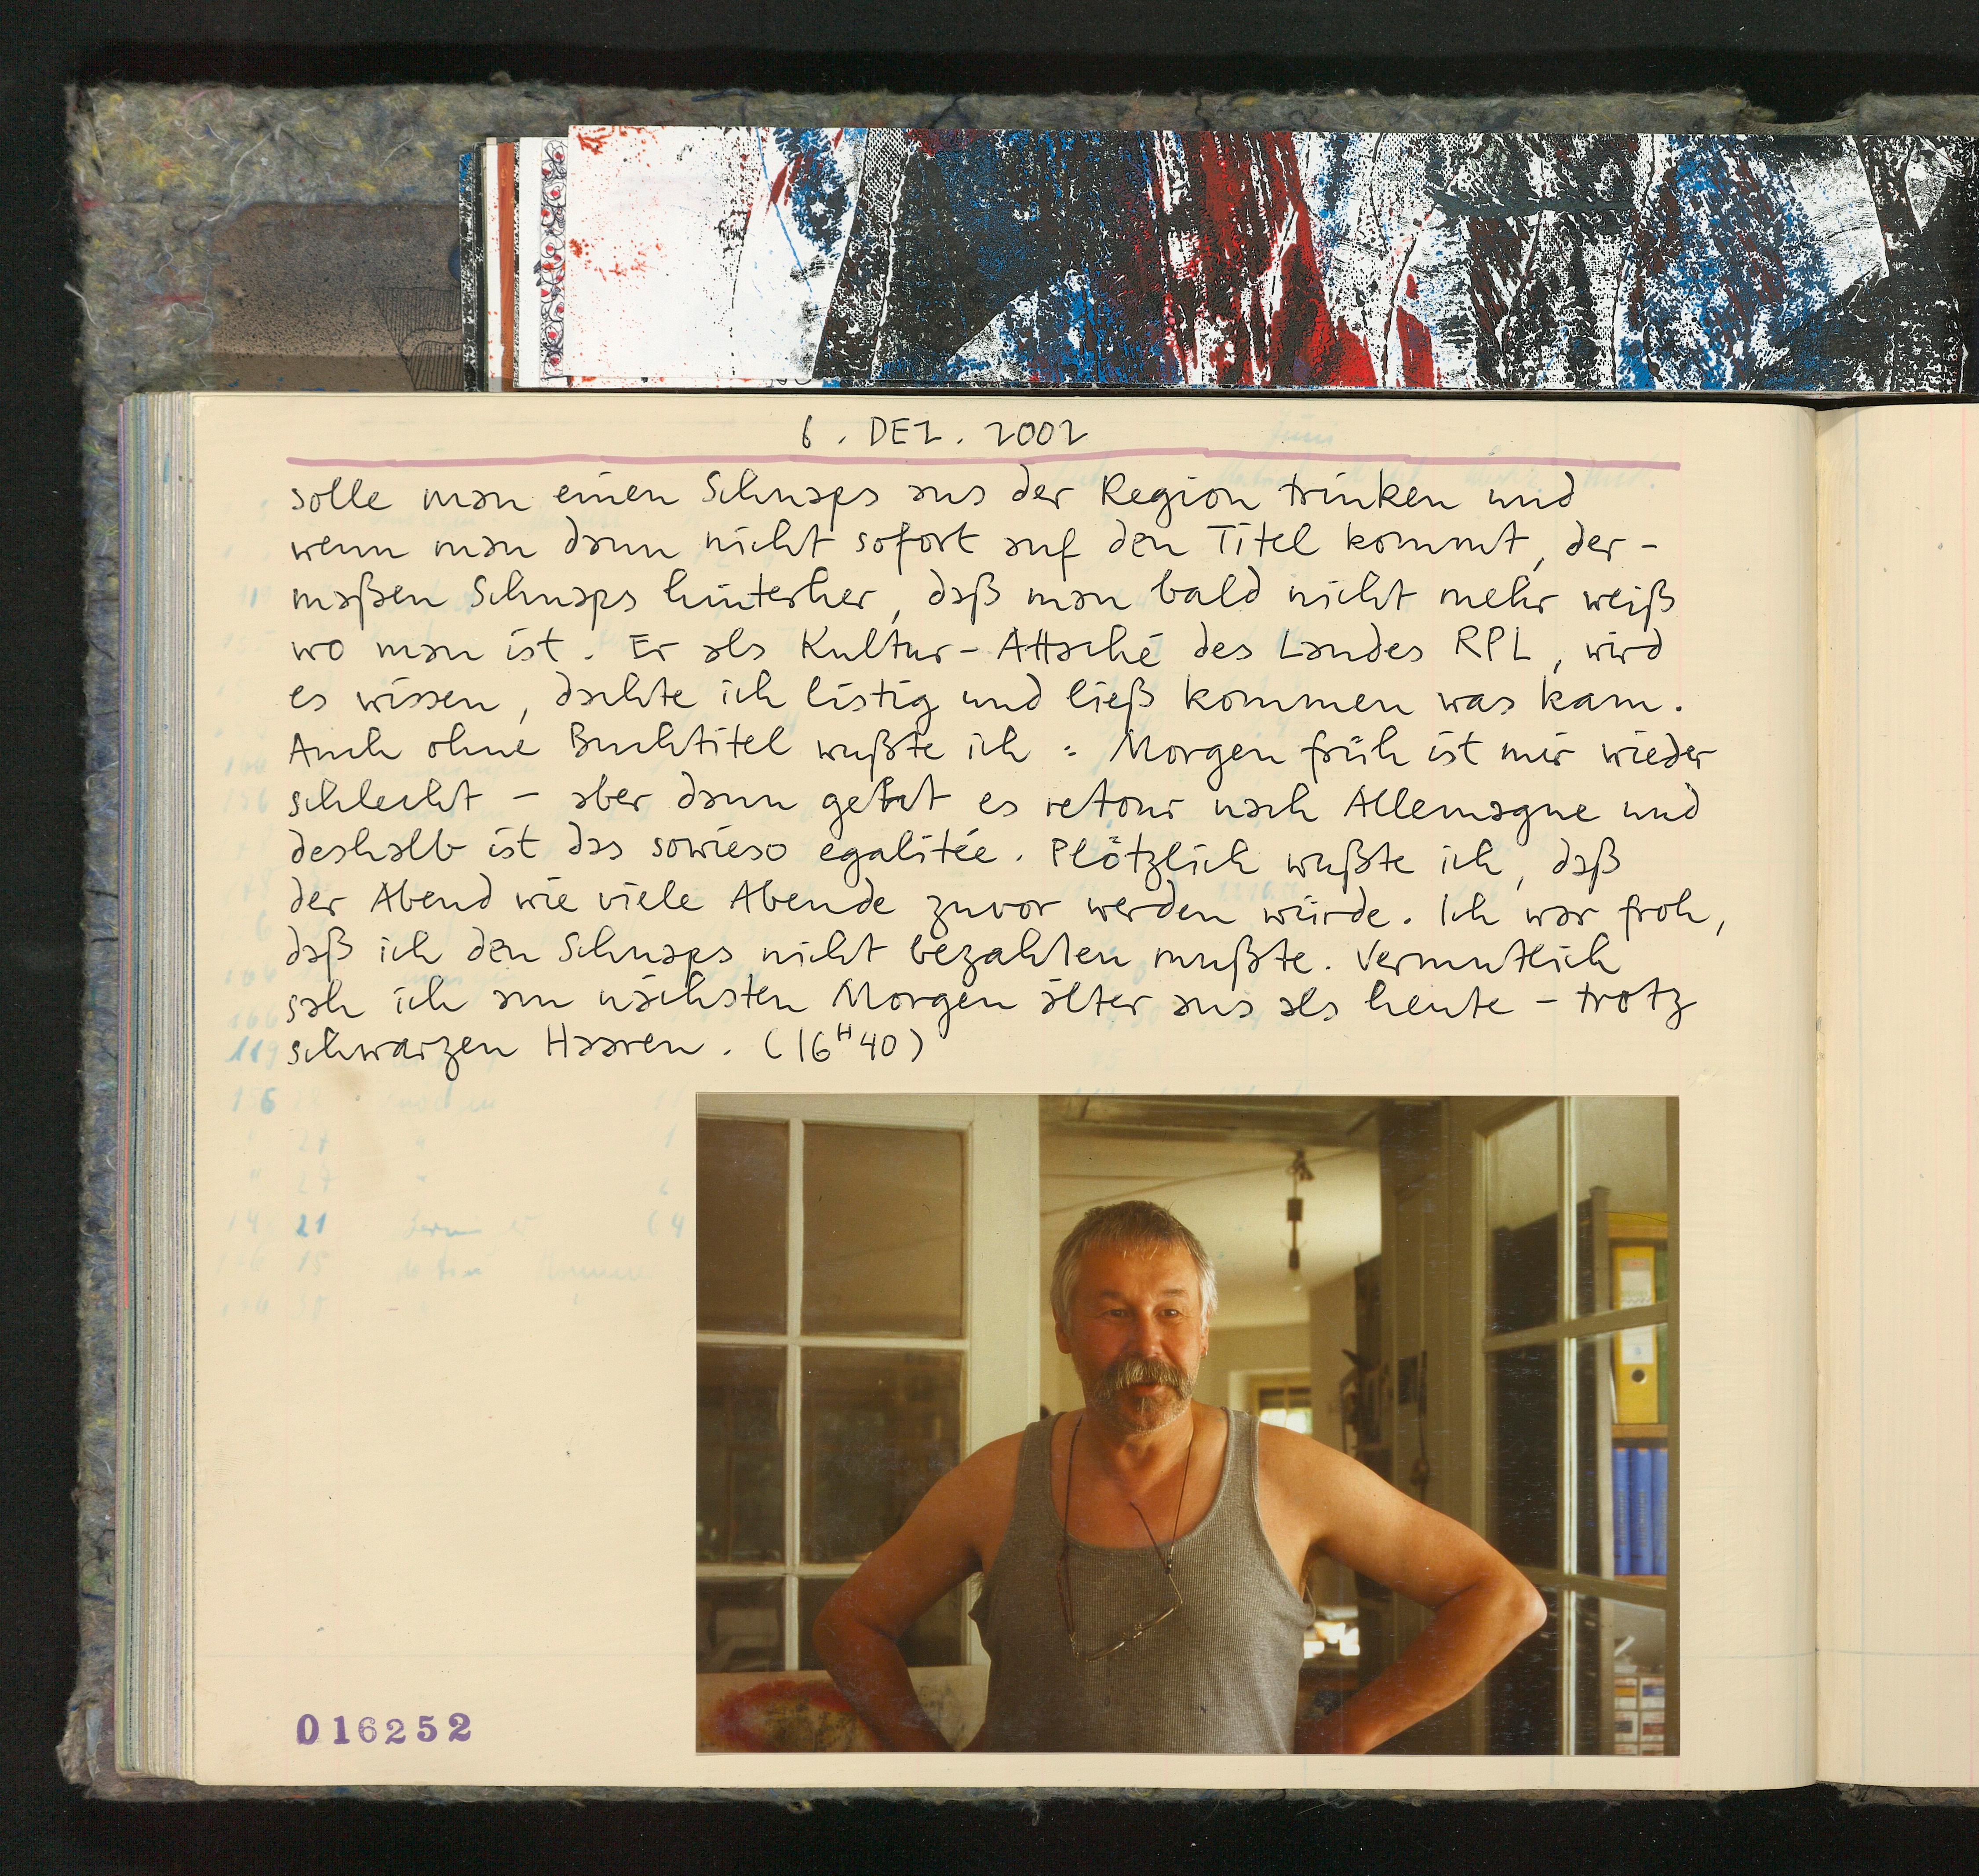 6. DEZ. 2002
solle man einen Schnaps aus der Region trinken und
wenn man dann nicht sofort auf den Titel kommt, der-
maßen Schnaps hinterher, daß man bald nicht mehr weiß
wo man ist. Er als Kultur-Attaché des Landes RPL, wird
es wissen, dachte ich listig und ließ kommen was kam.
Auch ohne Buchtitel wußte ich: Morgen früh ist mir wieder
schlecht - aber dann geht es retour nach Allemagne und
deshalb ist das sowieso egalitée. Plötzlich wußte ich, daß
der Abend wie viele Abende zuvor werden würde. Ich war froh,
daß ich den Schnaps nicht bezahlen mußte. Vermutlich
sah ich am nächsten Morgen älter aus als heute - trotz
schwarzen Haaren. (16H40)
016252